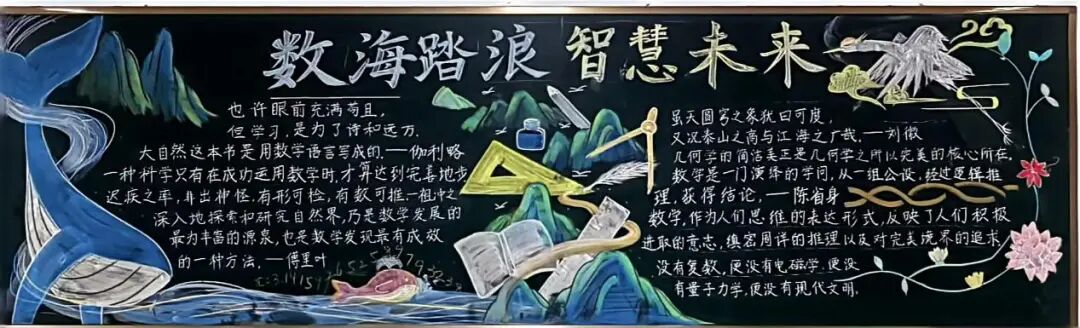 数海踏浪 智慧未来
也许眼前充满苟且,
但学习,是为了诗和远方.
大自然这本书是用数学语言写成的.——伽利略
一种科学只有在成功运用数学时,才算达到完善地步
迟疾之率,非出神怪,有形可检,有数可推—祖冲之
深入地探索和研究自然界,乃是数学发展的
最为丰富的源泉,也是数学发现最有成效
的一种方法.——傅里叶
虽天圆穹之象犹曰可度,
又况泰山之高与江海之广哉.——刘徽
几何学的简洁美正是几何学之所以完美的核心所在.
数学是一门演绎的学问,从一组公设,经过逻辑推
理,获得结论,——陈省身
数学,作为人们思维的表达形式,反映了人们积极
进取的意志,缜密周详的推理以及对完美境界的追求
没有复数,便没有电磁学,便没
有量子力学,便没有现代文明.